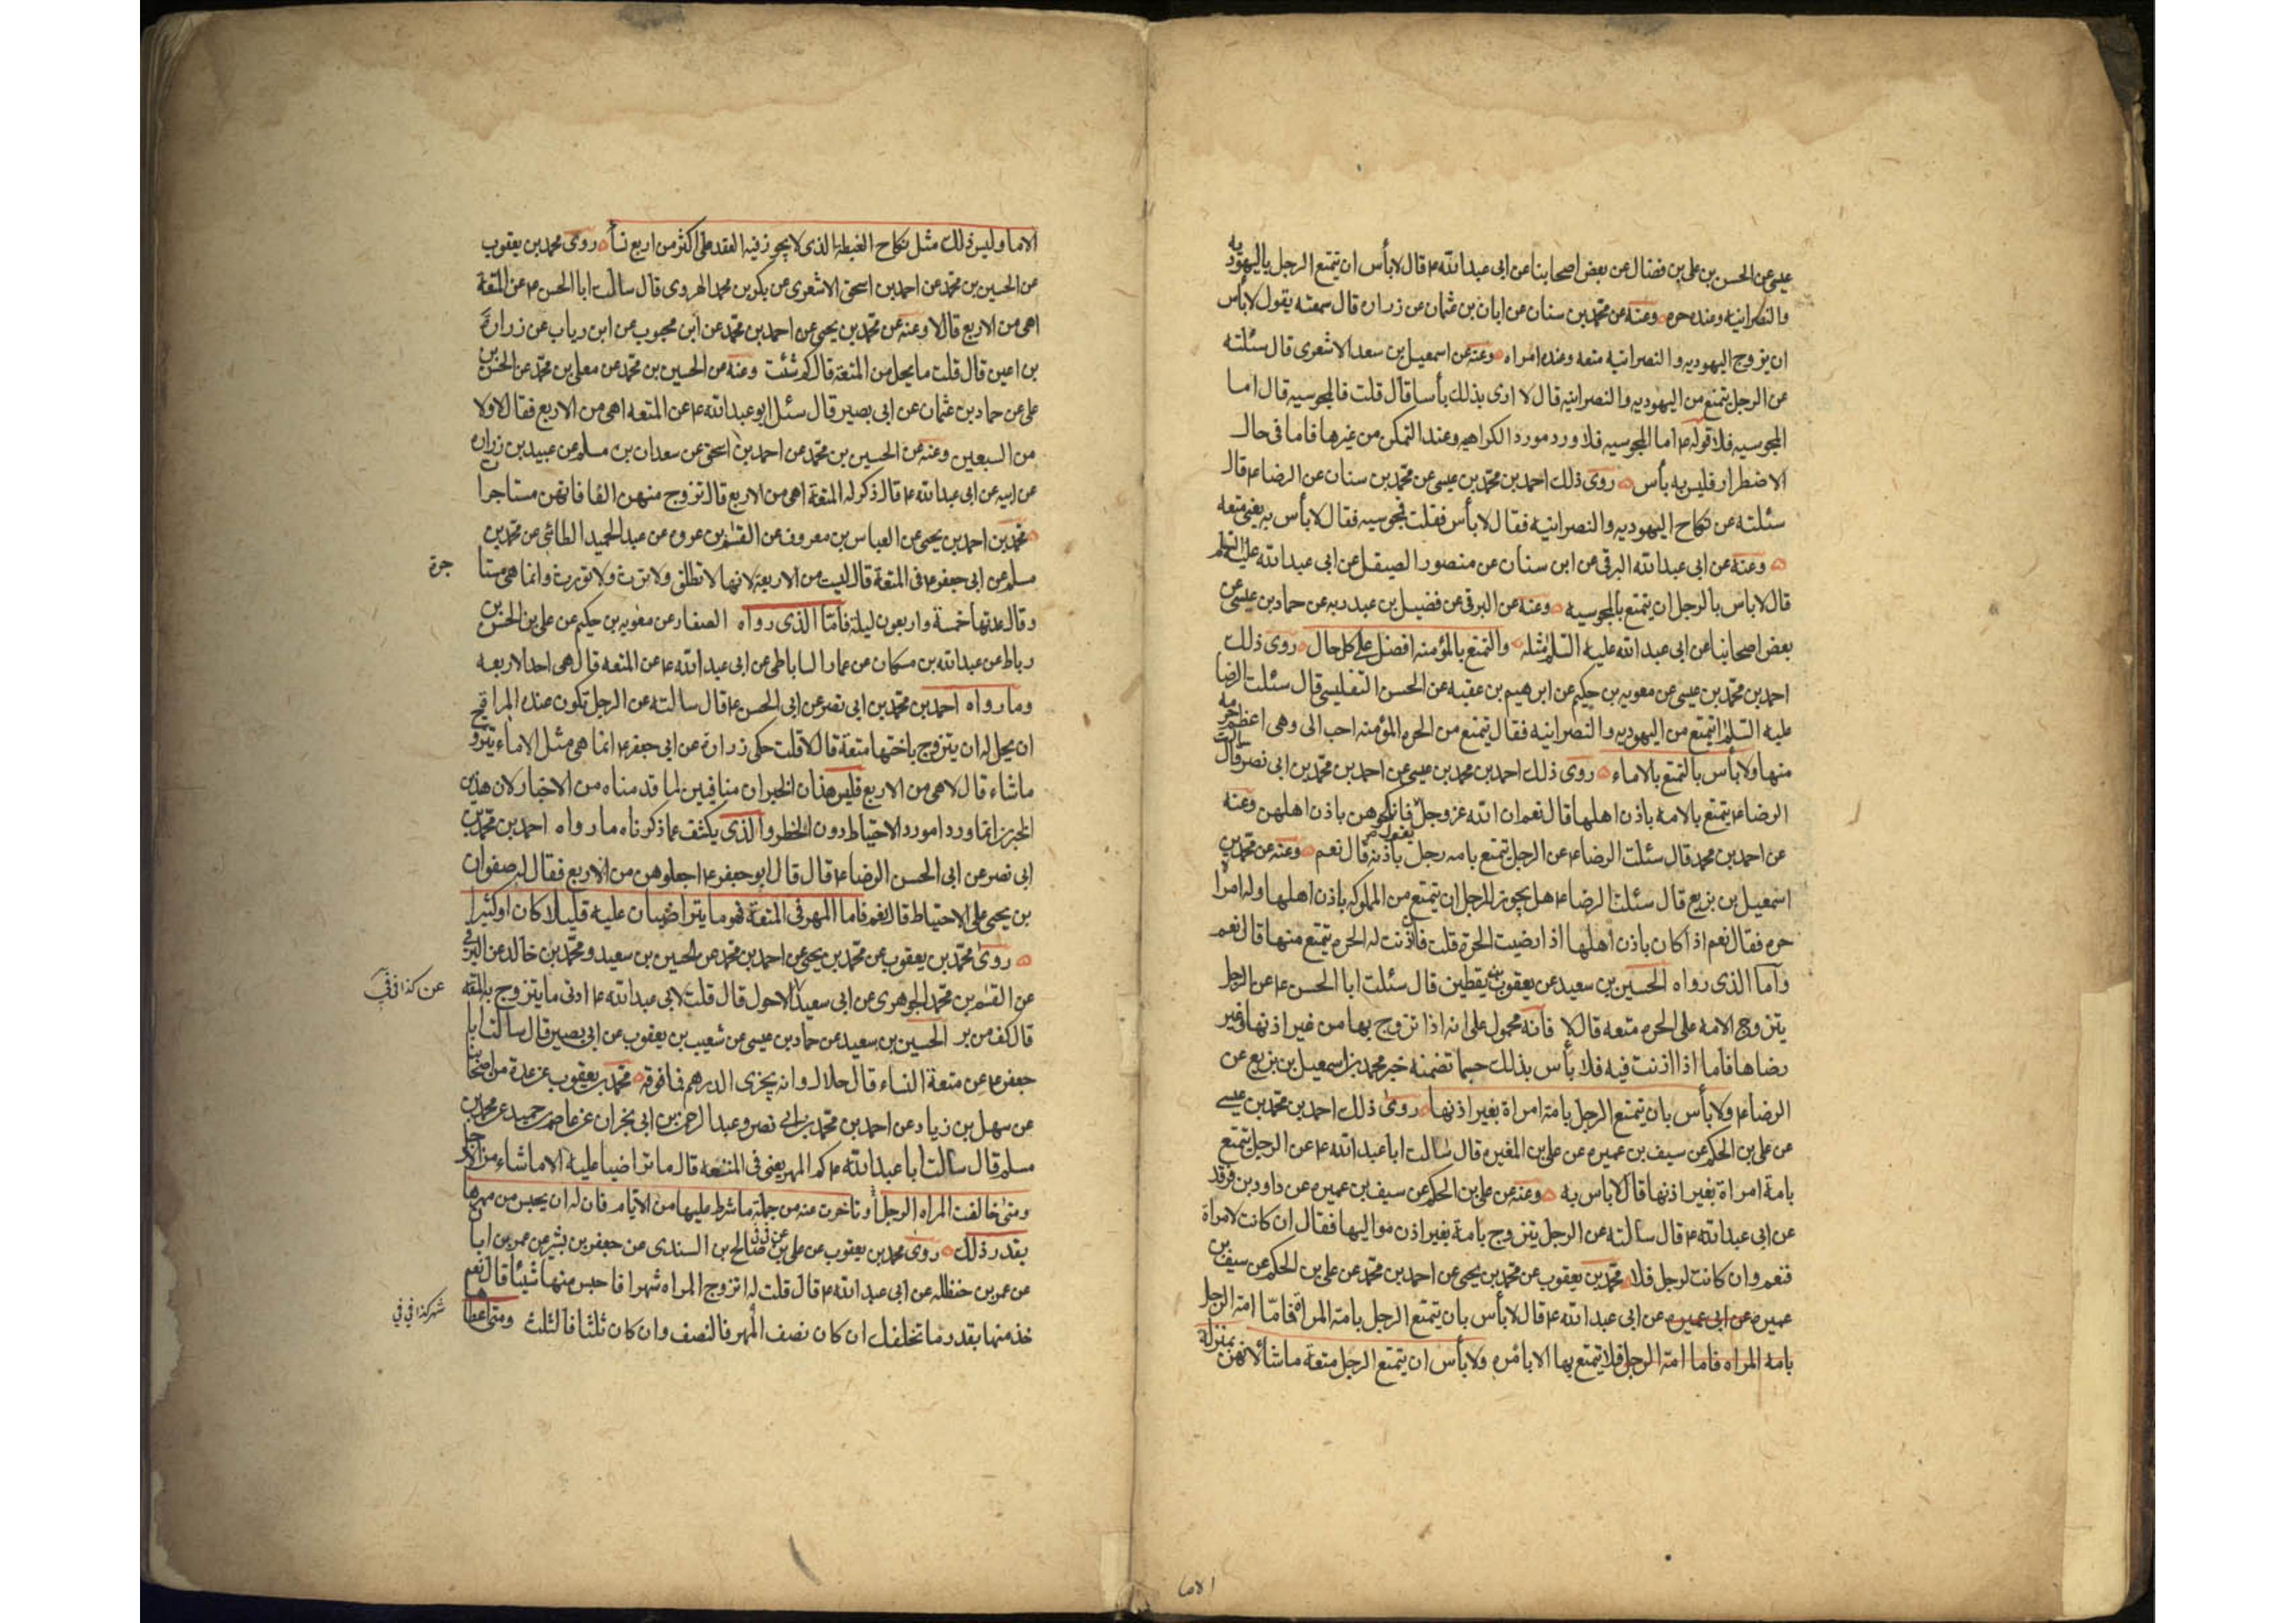 عيسى عن الحسن بن على بن فضال عن بعض اصحابنا عن ابى عبدالله ع قال لا بأس ان يتمتع الرجل باليهوديه
والنصرانيه وعنده حره وعنه عن محمد بن سنان عن ابان بن عثمان عن زراره قال سمعته يقول لا بأس
ان يزوج اليهوديه والنصرانيه متعه وعنده امراه وعنه عن اسمعيل بن سعد الاشعرى قال سئلته
عن الرجل يتمتع من اليهوديه والنصرانيه قال لا ارى بذلك بأسا قال قلت فالمجوسيه قال اما
المجوسيه فلا قوله ع اما المجوسيه فلا ورد مورد الكراهيه وعند التمكن من غيرها فاما فى حال
الاضطرار فليس به بأس روى ذلك احمد بن محمد بن عيسى عن محمد بن سنان عن الرضا ع قال
سئلته عن نكاح اليهوديه والنصرانيه فقال لا بأس فقلت فمجوسيه فقال لا بأس به يعنى متعه
وعنه عن ابى عبدالله البرقى عن ابن سنان عن منصور الصيقل عن ابى عبدالله عليه السلم
قال لا باس بالرجل ان يتمتع بالمجوسيه وعنه عن البرقى عن فضيل بن عبد ربه عن حماد بن عيسى عن
بعض اصحابنا عن ابى عبدالله عليه السلم مثله والتمتع بالمؤمنه افضل على كل حال روى ذلك
احمد بن محمد بن عيسى عن معويه بن حكيم عن ابرهيم بن عقبه عن الحسن التفليسى قال سئلت الرضا
عليه السلم ايتمتع من اليهوديه والنصرانيه فقال يتمتع من الحره المؤمنه احب الى وهى اعظم حرمه
منها ولا بأس بالتمتع بالاماء روى ذلك احمد بن محمد بن عيسى عن احمد بن محمد بن ابى نصر قال سالت
الرضا ع يتمتع بالامه باذن اهلها قال نعم ان الله عز وجل يقول فانكحوهن باذن اهلهن وعنه
عن احمد بن محمد قال سئلت الرضا ع عن الرجل يتمتع بامه رجل باذنه قال نعم وعنه عن محمد بن
اسمعيل بن بزيع قال سئلت الرضا ع هل يجوز للرجل ان يتمتع من المملوكه باذن اهلها وله امراة
حره فقال نعم اذا كان باذن اهلها اذا رضيت الحرة قلت فان اذنت له الحره يتمتع منها قال نعم
واما الذى رواه الحسين بن سعيد عن يعقوب بن يقطين قال سئلت ابا الحسن ع عن الرجل
يتزوج الامه على الحره متعه قال لا فانه محمول على انه اذا تزوج بها من غير اذنها وغير
رضاها فاما اذا اذنت فيه فلا بأس بذلك حسبما تضمنه خبر محمد بن اسمعيل بن بزيع عن
الرضا ع ولا بأس بان يتمتع الرجل بامة امراة بغير اذنها روى ذلك احمد بن محمد بن عيسى
عن على بن الحكم عن سيف بن عميره عن على بن المغيره قال سالت ابا عبدالله ع عن الرجل يتمتع
بامة امراة بغير اذنها قال لا باس به وعنه عن على بن الحكم عن سيف بن عميره عن داود بن فرقد
عن ابى عبدالله ع قال سالته عن الرجل يتزوج بامة بغير اذن مواليها فقال ان كانت لامراة
فنعم وان كانت لرجل فلا محمد بن يعقوب عن محمد بن يحيى عن احمد بن محمد عن على بن الحكم عن سيف بن
عميره عن ابى عميره عن ابى عبدالله ع قال لا بأس بان يتمتع الرجل بامة المراة فاما امة الرجل
بامة المراه فاما امة الرجل فلا يتمتع بها الا بامره ولا بأس ان يتمتع الرجل متعة ما شاء لانهن بمنزلة
الاما
الاما وليس ذلك مثل نكاح الغبطة الذى لا يجوز فيه العقد على اكثر من اربع نسأ روى محمد بن يعقوب
عن الحسين بن محمد عن احمد بن اسحق الاشعرى عن بكر بن محمد الهروى قال سالت ابا الحسن ع عن المتعة
اهى من الاربع قال لا وعنه عن محمد بن يحيى عن احمد بن محمد عن ابن محبوب عن ابن رياب عن زرارة
بن اعين قال قلت ما يحل من المتعة قال كم شئت وعنه عن الحسين بن محمد عن معلى بن محمد عن الحسن بن
على عن حماد بن عثمان عن ابى بصير قال سئل ابو عبدالله ع عن المتعه اهى من الاربع فقال لا ولا
من السبعين وعنه عن الحسين بن محمد عن احمد بن اسحق عن سعدان بن مسلم عن عبيد بن زراره
عن ابيه عن ابى عبدالله ع قال ذكر له المتعة اهى من الاربع قال تزوج منهن الفا فانهن مستاجرات
محمد بن احمد بن يحيى عن العباس بن معروف عن القسم بن عروه عن عبد الحميد الطائى عن محمد بن
مسلم عن ابى جعفر ع فى المتعة قال ليست من الاربعة لانها لا تطلق ولا ترث ولا تورث وانما هى مستا
جرة
وقال عدتها خمسة واربعون ليلة فاما الذى رواه الصفار عن معويه بن حكيم عن على بن الحسن بن
رباط عن عبدالله بن مسكان عن عمار الساباطى عن ابى عبدالله ع عن المتعه قال هى احد الاربعه
وما رواه احمد بن محمد بن ابى نصر عن ابى الحسن ع قال سالته عن الرجل تكون عنده المراة
ان يحل له ان يتزوج باختها متعة قال لا قلت حكى زرارة عن ابى جعفر ع انما هى مثل الاماء يتزوج
ما شاء قال لا هى من الاربع فليس هذان الخبران منافيين لما قدمناه من الاخبار لان هذين
الخبرين انما وردا مورد الاحتياط دون الحظر والذى يكشف عما ذكرناه ما رواه احمد بن محمد بن
ابى نصر عن ابى الحسن الرضا ع قال قال ابو جعفر ع اجعلوهن من الاربع فقال له صفوان
بن يحيى على الاحتياط قال نعم فاما المهر فى المتعة فهو ما يتراضيان عليه قليلا كان او كثيرا
روى محمد بن يعقوب عن محمد بن يحيى عن احمد بن محمد عن الحسين بن سعيد ومحمد بن خالد عن البرقى
عن كذا فى فى
عن القسم بن محمد الجوهرى عن ابى سعيد الاحول قال قلت لابى عبدالله ع ادنى ما يتزوج به المتعه
قال كف من بر الحسين بن سعيد عن حماد بن عيسى عن شعيب بن يعقوب عن ابى بصير قال سالت ابا
جعفر ع عن متعة النساء قال حلال وانه يجزى الدرهم فما فوقه محمد بن يعقوب عن عدة من اصحابنا
عن سهل بن زياد عن احمد بن محمد بن ابى نصر وعبد الرحمن بن ابى نجران عن عاصم بن حميد عن محمد بن
مسلم قال سالت ابا عبدالله ع كم المهر يعنى فى المتعه قال ما تراضيا عليه الا ما شاء من الاجل
ومتى خالفت المراه الرجل او تاخرت عنه من جملة ما شرط عليها من الايام فان له ان يحبس من مهرها
بقدر ذلك روى محمد بن يعقوب عن على بن صالح بن السندى عن جعفر بن بشير عن عمر بن ابان
عن عمر بن حنظله عن ابى عبدالله ع قال قلت له اتزوج المراه شهرا فاحبس منها شيئا قال نعم
شهر كذا فى فى
خذ منها بقدر ما تخلفك ان كان نصف المهر فالنصف وان كان ثلثا فالثلث ومتى اعطاها